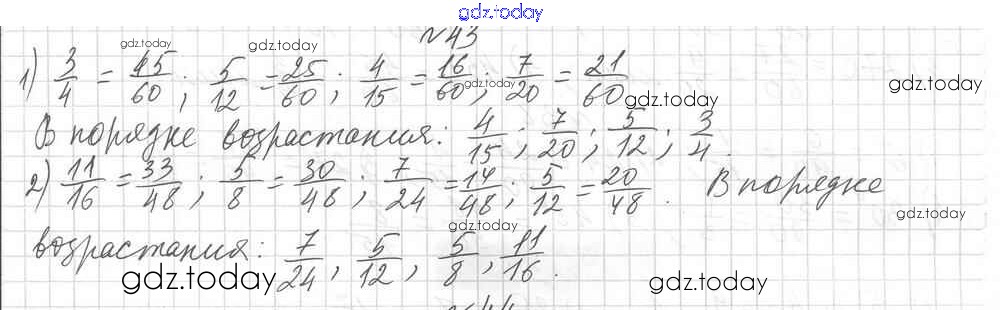 gdz.today
№43
gdz.today gdz.today
1) 3/4 = 45/60; 5/12 = 25/60; 4/15 = 16/60; 7/20 = 21/60
gdz.today gdz.today gdz.today
В порядке возрастания: 4/15; 7/20; 5/12; 3/4.
2) 11/16 = 33/48; 5/8 = 30/48; 7/24 = 14/48; 5/12 = 20/48. В порядке
gdz.today gdz.today
возрастания: 7/24, 5/12, 5/8, 11/16.
gdz.today gdz.today
№44